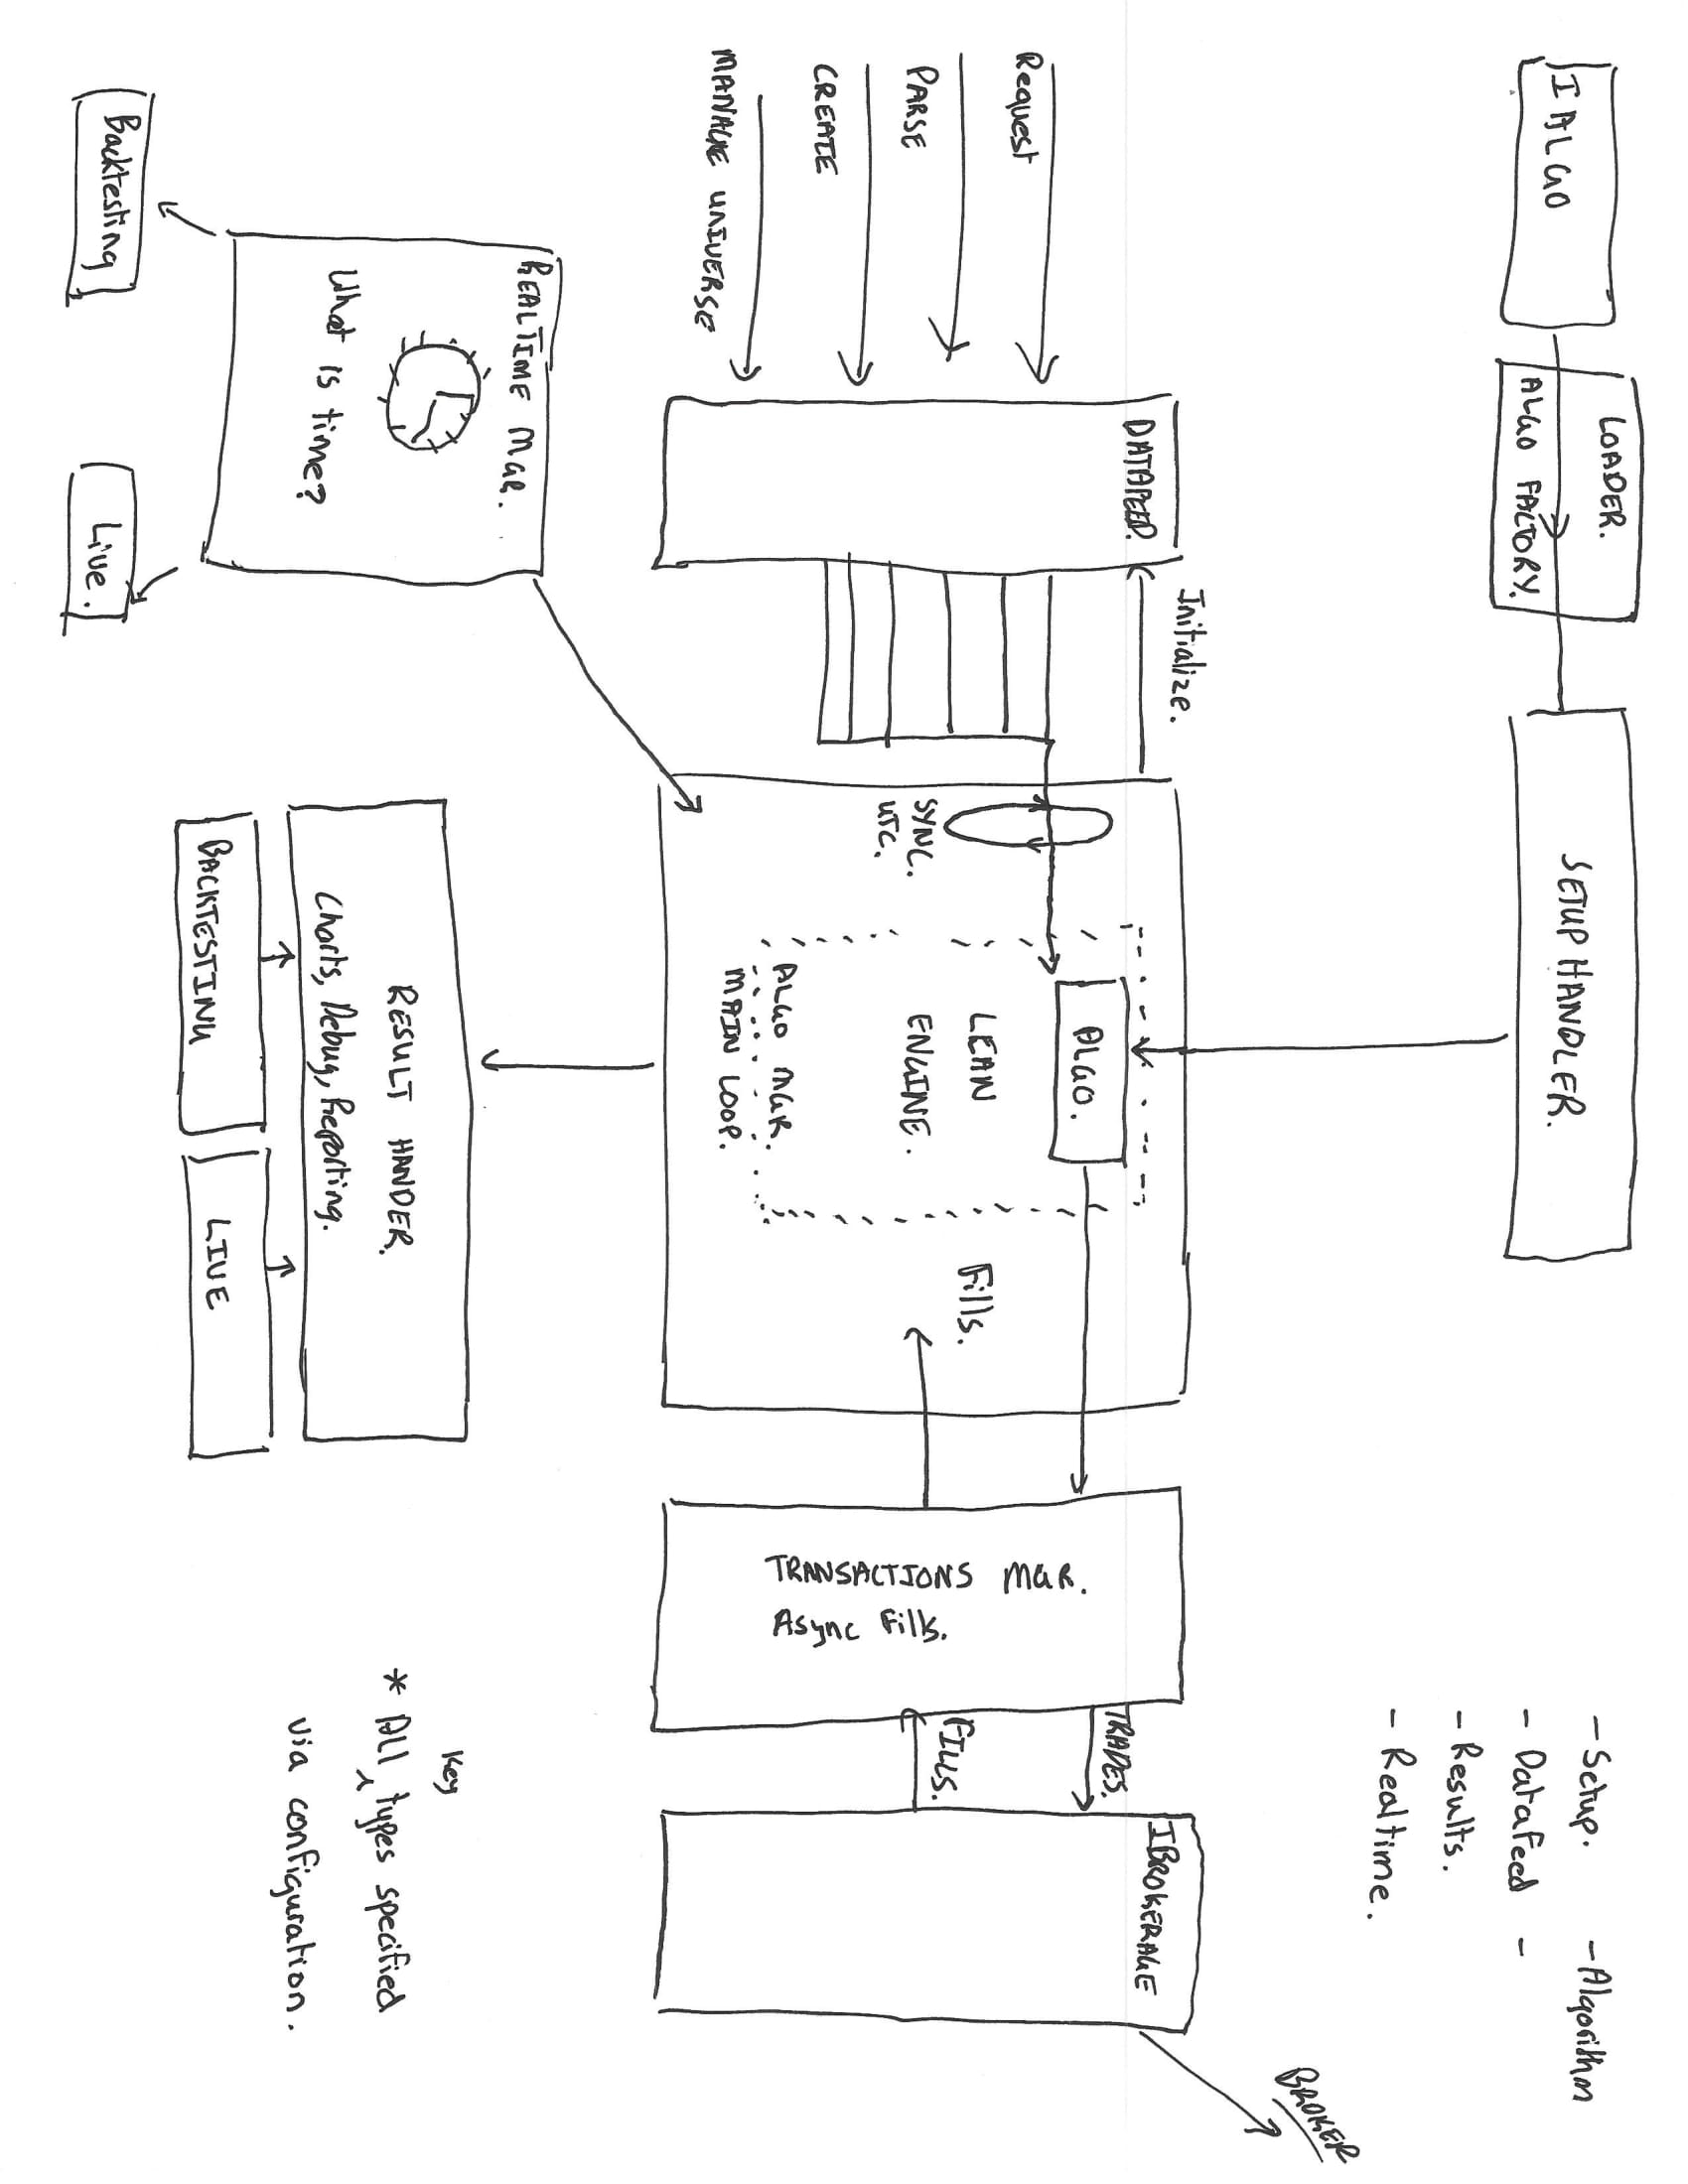 I ALGO
LOADER.
ALGO FACTORY.
SETUP HANDLER.
- Setup.
- DataFeed
- Results.
- Realtime.
- Algorithm
-
BROKER
Initialize.
DATAFEED.
Request
PARSE
CREATE
MANAGE UNIVERSE
SYNC.
UTC.
ALGO.
LEAN
ENGINE.
ALGO MGR.
MAIN LOOP.
Fills.
TRANSACTIONS MGR.
Async Fills.
TRADES.
FILLS.
IBROKERAGE
REALTIME MGR.
What is time?
Backtesting
Live.
RESULT HANDER.
Charts, Debug, Reporting.
BACKTESTING
LIVE
Key
* All types specified
via configuration.